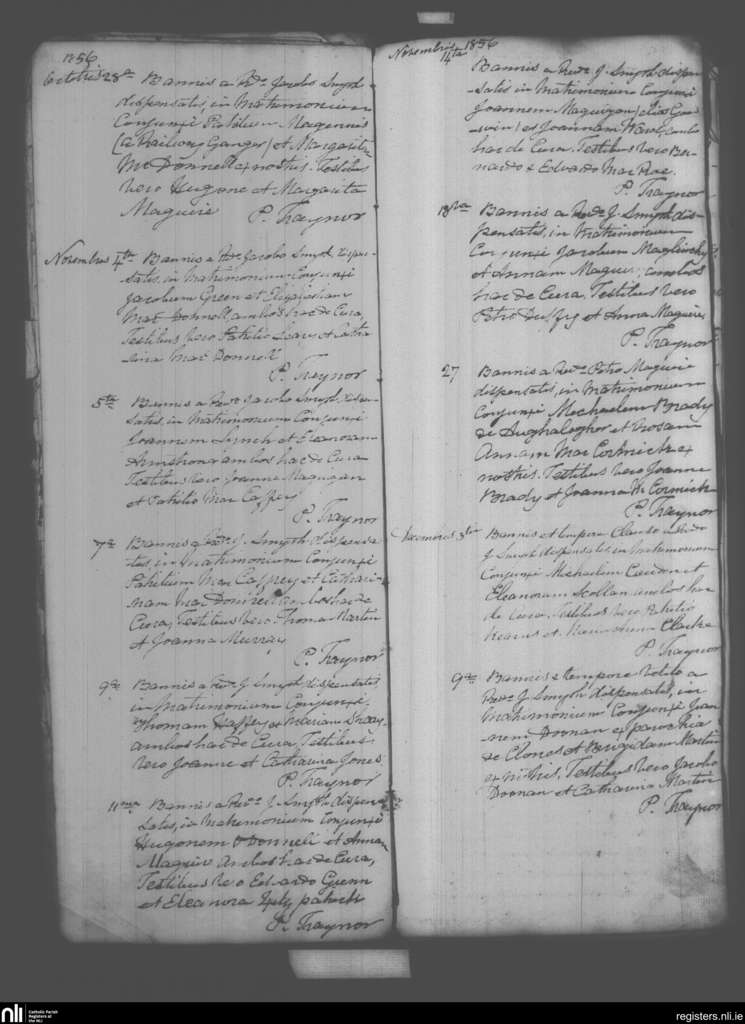 1856
Octobris 28ª Bannis a Rdo Jacobo Smyth
dispensatis, in Matrimonium
Conjunxi Patritium Magennis
(a Railway Ganger) et Margaritam
McDonnell ex nothis. Testibus
vero Hugone et Margarita
Maguire P. Traynor
Novembris 4ta Bannis a Rdo Jacobo Smyth, dispen-
satis, in Matrimonium Conjunxi
Jacobum Green et
Mac Donnell ambos hac de Cura,
Testibus vero Patritio et Catha
rina Mac Donnell
P. Traynor
5ta Bannis a Revdo Jacobo Smyth, dispen-
satis, in Matrimonium Conjunxi
Joannem Lynch et Eleanoram
Armstrong ambos hac de Cura
Testibus vero Joanne Maguigan
et Patritio Mac Caffrey
P. Traynor
7ta Bannis a Revdo J. Smyth dispensa
tis, in Matrimonium Conjunxi
Patritium Mac Caffrey et Cathari-
nam Mac Donnell ambos hac de
Cura, Testibus vero Thoma Martin
et Joanna Murray
P. Traynor
9na Bannis a Revdo J. Smyth dispensatis
in Matrimonium Conjunxi,
Thomam Haffey et Mariam
ambos hac de Cura Testibus
vero Joanne et Catharina Jones
P. Traynor
11ma Bannis a Revdo J. Smyth dispen
satis, in Matrimonium Conjunxi
Hugonem O Donnell et Annam
Maguire Ambos hac de Cura,
Testibus vero Edvardo Green
et Eleanora
P. Traynor
Novembris 1856
14ta
Bannis a Revdo J. Smyth dispen
satis in Matrimonium Conjunxi
Joannem Maguigan (alias Goo
win) et Joannam Ward, ambo
hac de Cura. Testibus vero Ber-
nardo & Edvardo Mac
P. Traynor
18va Bannis a Revdo J. Smyth dis-
pensatis, in Matrimonium
Conjunxi Jacobum
et Annam Maguire, ambos
hac de Cura, Testibus vero
Petro Duffy et Anna Maguire
P. Traynor
27 Bannis a Revdo Petro Maguire
dispensatis, in Matrimonium
Conjunxi Michaelem Brady
de Aughalaghor et Rosam
Annam Mac Cormick ex
nothis. Testibus vero Joanne
Brady et Joanna McCormick
P. Traynor
Decembris 3tia Bannis et tempore Clauso a Revdo
J Smyth dispensatis, in Matrimonium
Conjunxi Michaelem et
Eleanoram Scollan ambos hac
de Cura. Testibus vero Patritio
Keans et Clarke
P. Traynor
9na Bannis & tempore vetito a
Revdo J. Smyth dispensatis, in
Matrimonium Conjunxi Joan
nem Dornan ex parochia
de Clones et Brigidam Martin
ex nothis, Testibus vero Jacobo
Dornan et Catharina Martin
P. Traynor
nli Catholic Parish
Registers at
the NLI
registers.nli.ie